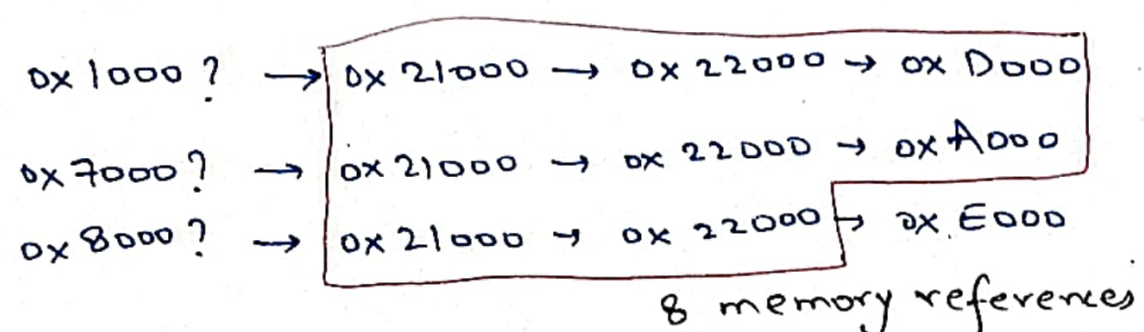 0x 1000 ? → 0x 21000 → 0x 22000 → 0x D000
0x 7000 ? → 0x 21000 → 0x 22000 → 0x A000
0x 8000 ? → 0x 21000 → 0x 22000 → 0x E000
8 memory references